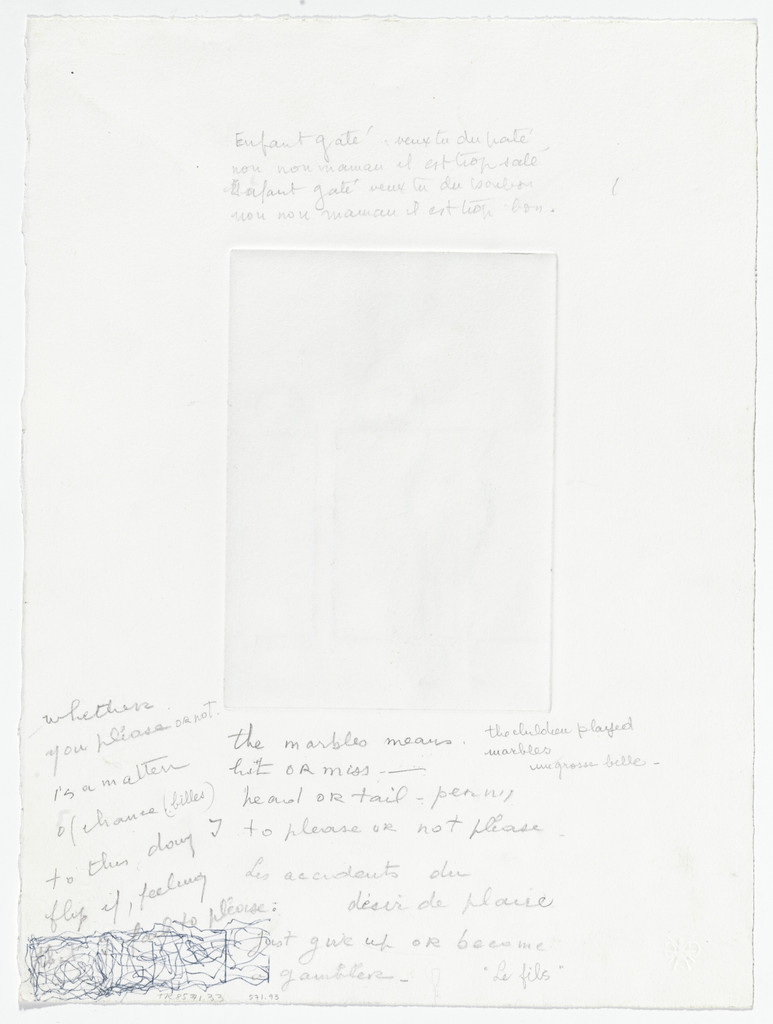 Enfant gaté veux tu du paté
non non maman il est trop salé
Enfant gaté veux tu du bonbon
non non maman il est trop bon.
whether
you please or not.
is a matter
of chance (billes)
to this day I
flip if, feeling
to please:
the marbles means.
hit OR miss —
head OR tail - penny
to please OR not please
Les accidents du
désir de plaire
Just give up OR become
a gambler -
"Le fils"
the children played
marbles
une grosse bille -
TR 8571.33
571.93